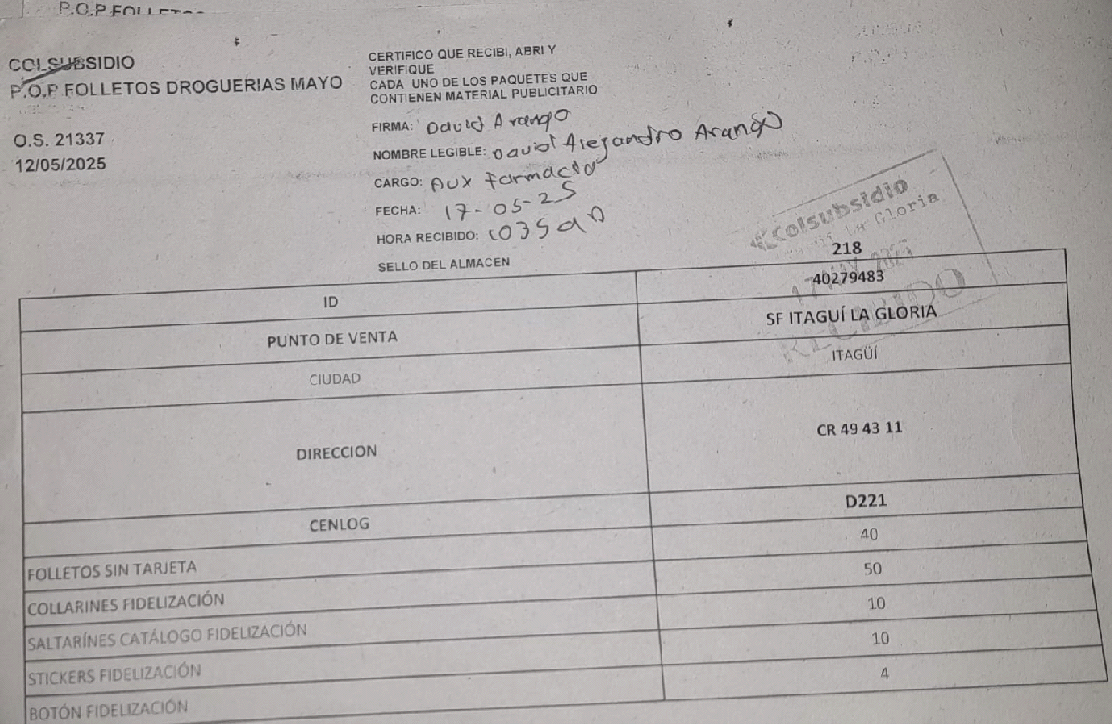 P.O.P FOLLETOS
COLSUBSIDIO
P.O.P FOLLETOS DROGUERIAS MAYO
O.S. 21337
12/05/2025
CERTIFICO QUE RECIBI, ABRI Y
VERIFIQUE
CADA UNO DE LOS PAQUETES QUE
CONTIENEN MATERIAL PUBLICITARIO
FIRMA: David Arango
NOMBRE LEGIBLE: David Alejandro Arango
CARGO: Aux farmacia
FECHA: 17-05-25
HORA RECIBIDO: 1035am
SELLO DEL ALMACEN
Colsubsidio
La Gloria
RECIBIDO
218
ID 40279483
PUNTO DE VENTA SF ITAGUÍ LA GLORIA
CIUDAD ITAGÜÍ
DIRECCION CR 49 43 11
CENLOG D221
FOLLETOS SIN TARJETA 40
COLLARINES FIDELIZACIÓN 50
SALTARÍNES CATÁLOGO FIDELIZACIÓN 10
STICKERS FIDELIZACIÓN 10
BOTÓN FIDELIZACIÓN 4